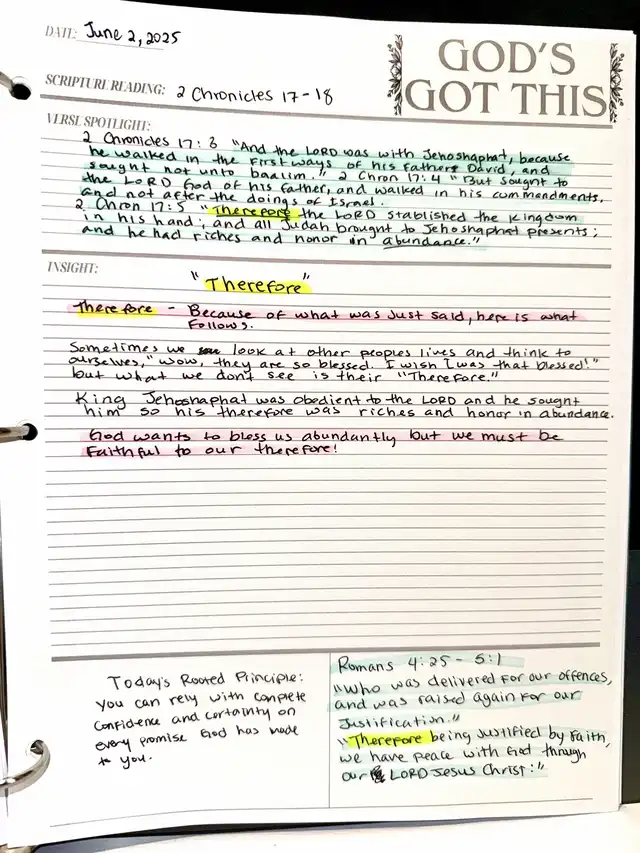 DATE: June 2, 2025
GOD'S
GOT THIS
SCRIPTURE READING: 2 Chronicles 17-18
VERSE SPOTLIGHT:
2 Chronicles 17:3 "And the LORD was with Jehoshaphat, because
he walked in the first ways of his father David, and
sought not unto baalim." 2 Chron 17:4 "But sought to
the LORD God of his father, and walked in his commandments,
and not after the doings of Israel.
2 Chron 17:5 "Therefore the LORD stablished the kingdom
in his hand; and all Judah brought to Jehoshaphat presents;
and he had riches and honor in abundance."
INSIGHT:
"Therefore"
Therefore - Because of what was just said, here is what
follows.
Sometimes we look at other peoples lives and think to
ourselves, "wow, they are so blessed. I wish I was that blessed!"
but what we don't see is their "Therefore."
King Jehoshaphat was obedient to the LORD and he sought
him so his therefore was riches and honor in abundance.
God wants to bless us abundantly but we must be
Faithful to our therefore!
Today's Rooted Principle:
You can rely with complete
confidence and certainty on
every promise God has made
to you.
Romans 4:25 - 5:1
"Who was delivered for our offences,
and was raised again for our
justification."
"Therefore being justified by faith,
we have peace with God through
our LORD Jesus Christ:"